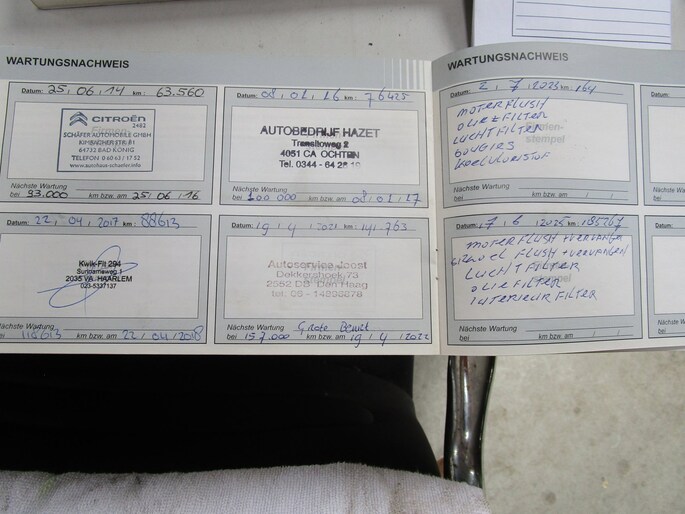 WARTUNGSNACHWEIS
Datum: 25.06.14 km: 63.560
CITROËN
2482
SCHÄFER AUTOMOBILE GMBH
KIMBACHER STR. 81
64732 BAD KÖNIG
TELEFON 0 60 63 / 17 52
www.autohaus-schaefer.info
Nächste Wartung
bei 93.000 km bzw. am 25.06.16
Datum: 08.01.16 km: 76425
AUTOBEDRIJF HAZET
Transitoweg 2
4051 CA OCHTEN
Tel. 0344 - 64 28
Nächste Wartung
bei 100.000 km bzw. am 08/01/17
Datum: 22.04.2017 km: 88613
Kwik-Fit 294
2035 VA HAARLEM
023-5337137
Nächste Wartung
bei 118613 km bzw. am 22/04/2018
Datum: 19/4/2021 km: 141.763
Autoservice Joost
Dekkershoek 73
2552 DB Den Haag
tel. 06 - 14898878
Nächste Wartung Grote Beurt
bei 157.000 km bzw. am 19/4/2022
WARTUNGSNACHWEIS
Datum: 2/7/2023 km: 164
MOTERFLUSH
OLIE & FILTER
LUCHTFILTER
BOUGIES
KOELVLOEISTOF
stempel
Nächste Wartung
bei km bzw. am
Datum: 7/6/2025 km: 185767
MOTERFLUSH + VERVANGEN
FLUSH + VERVANGEN
LUCHTFILTER
OLIE FILTER
INTERIEUR FILTER
Nächste Wartung
bei km bzw. am
Datum:
Nächste
bei
Datum:
Nächste
bei